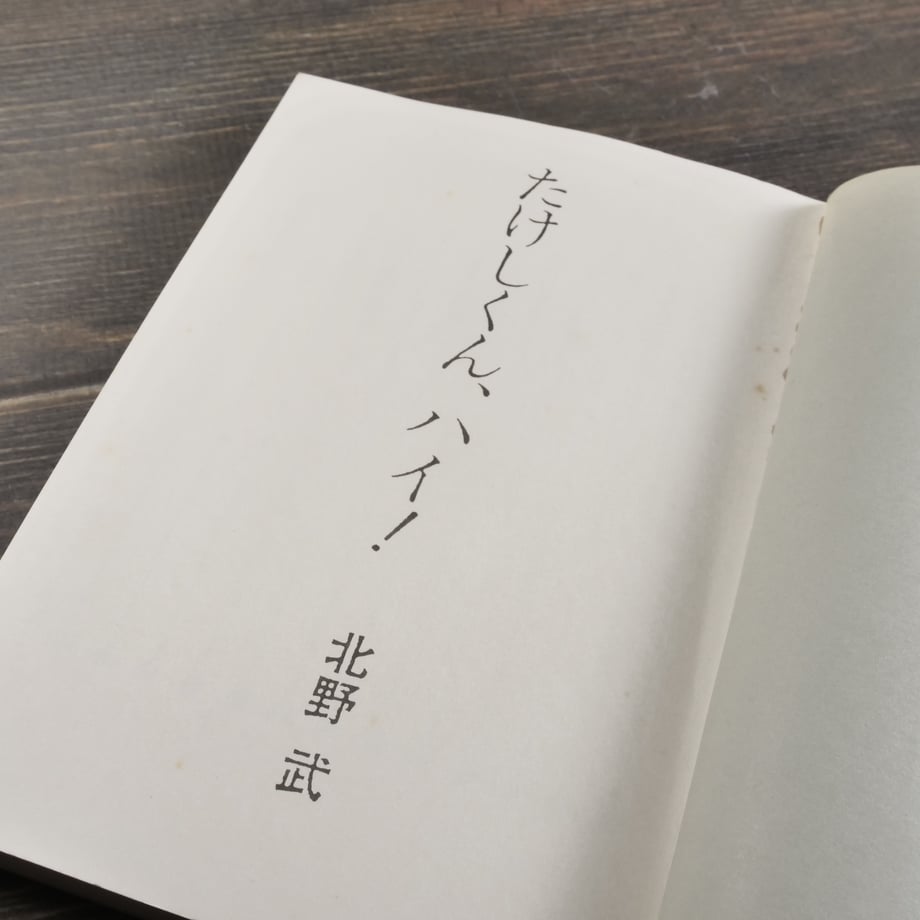 たけしくん、ハイ!
北野 武